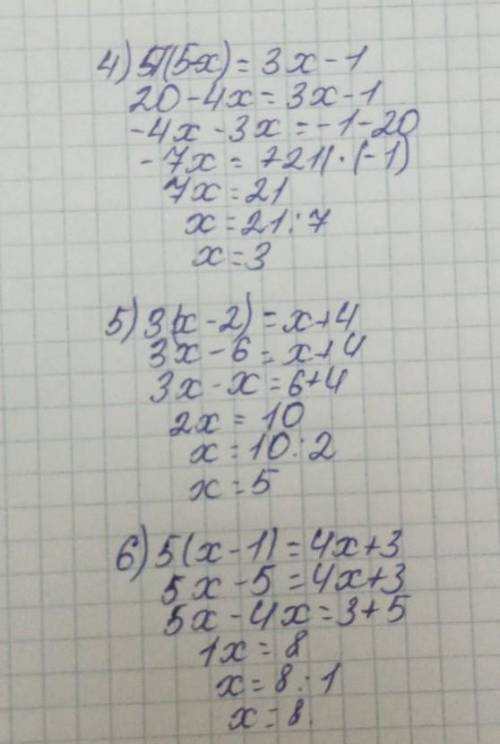 4) 4(5-x) = 3x - 1
20 - 4x = 3x - 1
-4x - 3x = -1 - 20
-7x = -21 | · (-1)
7x = 21
x = 21 : 7
x = 3
5) 3(x - 2) = x + 4
3x - 6 = x + 4
3x - x = 6 + 4
2x = 10
x = 10 : 2
x = 5
6) 5(x - 1) = 4x + 3
5x - 5 = 4x + 3
5x - 4x = 3 + 5
1x = 8
x = 8 : 1
x = 8.